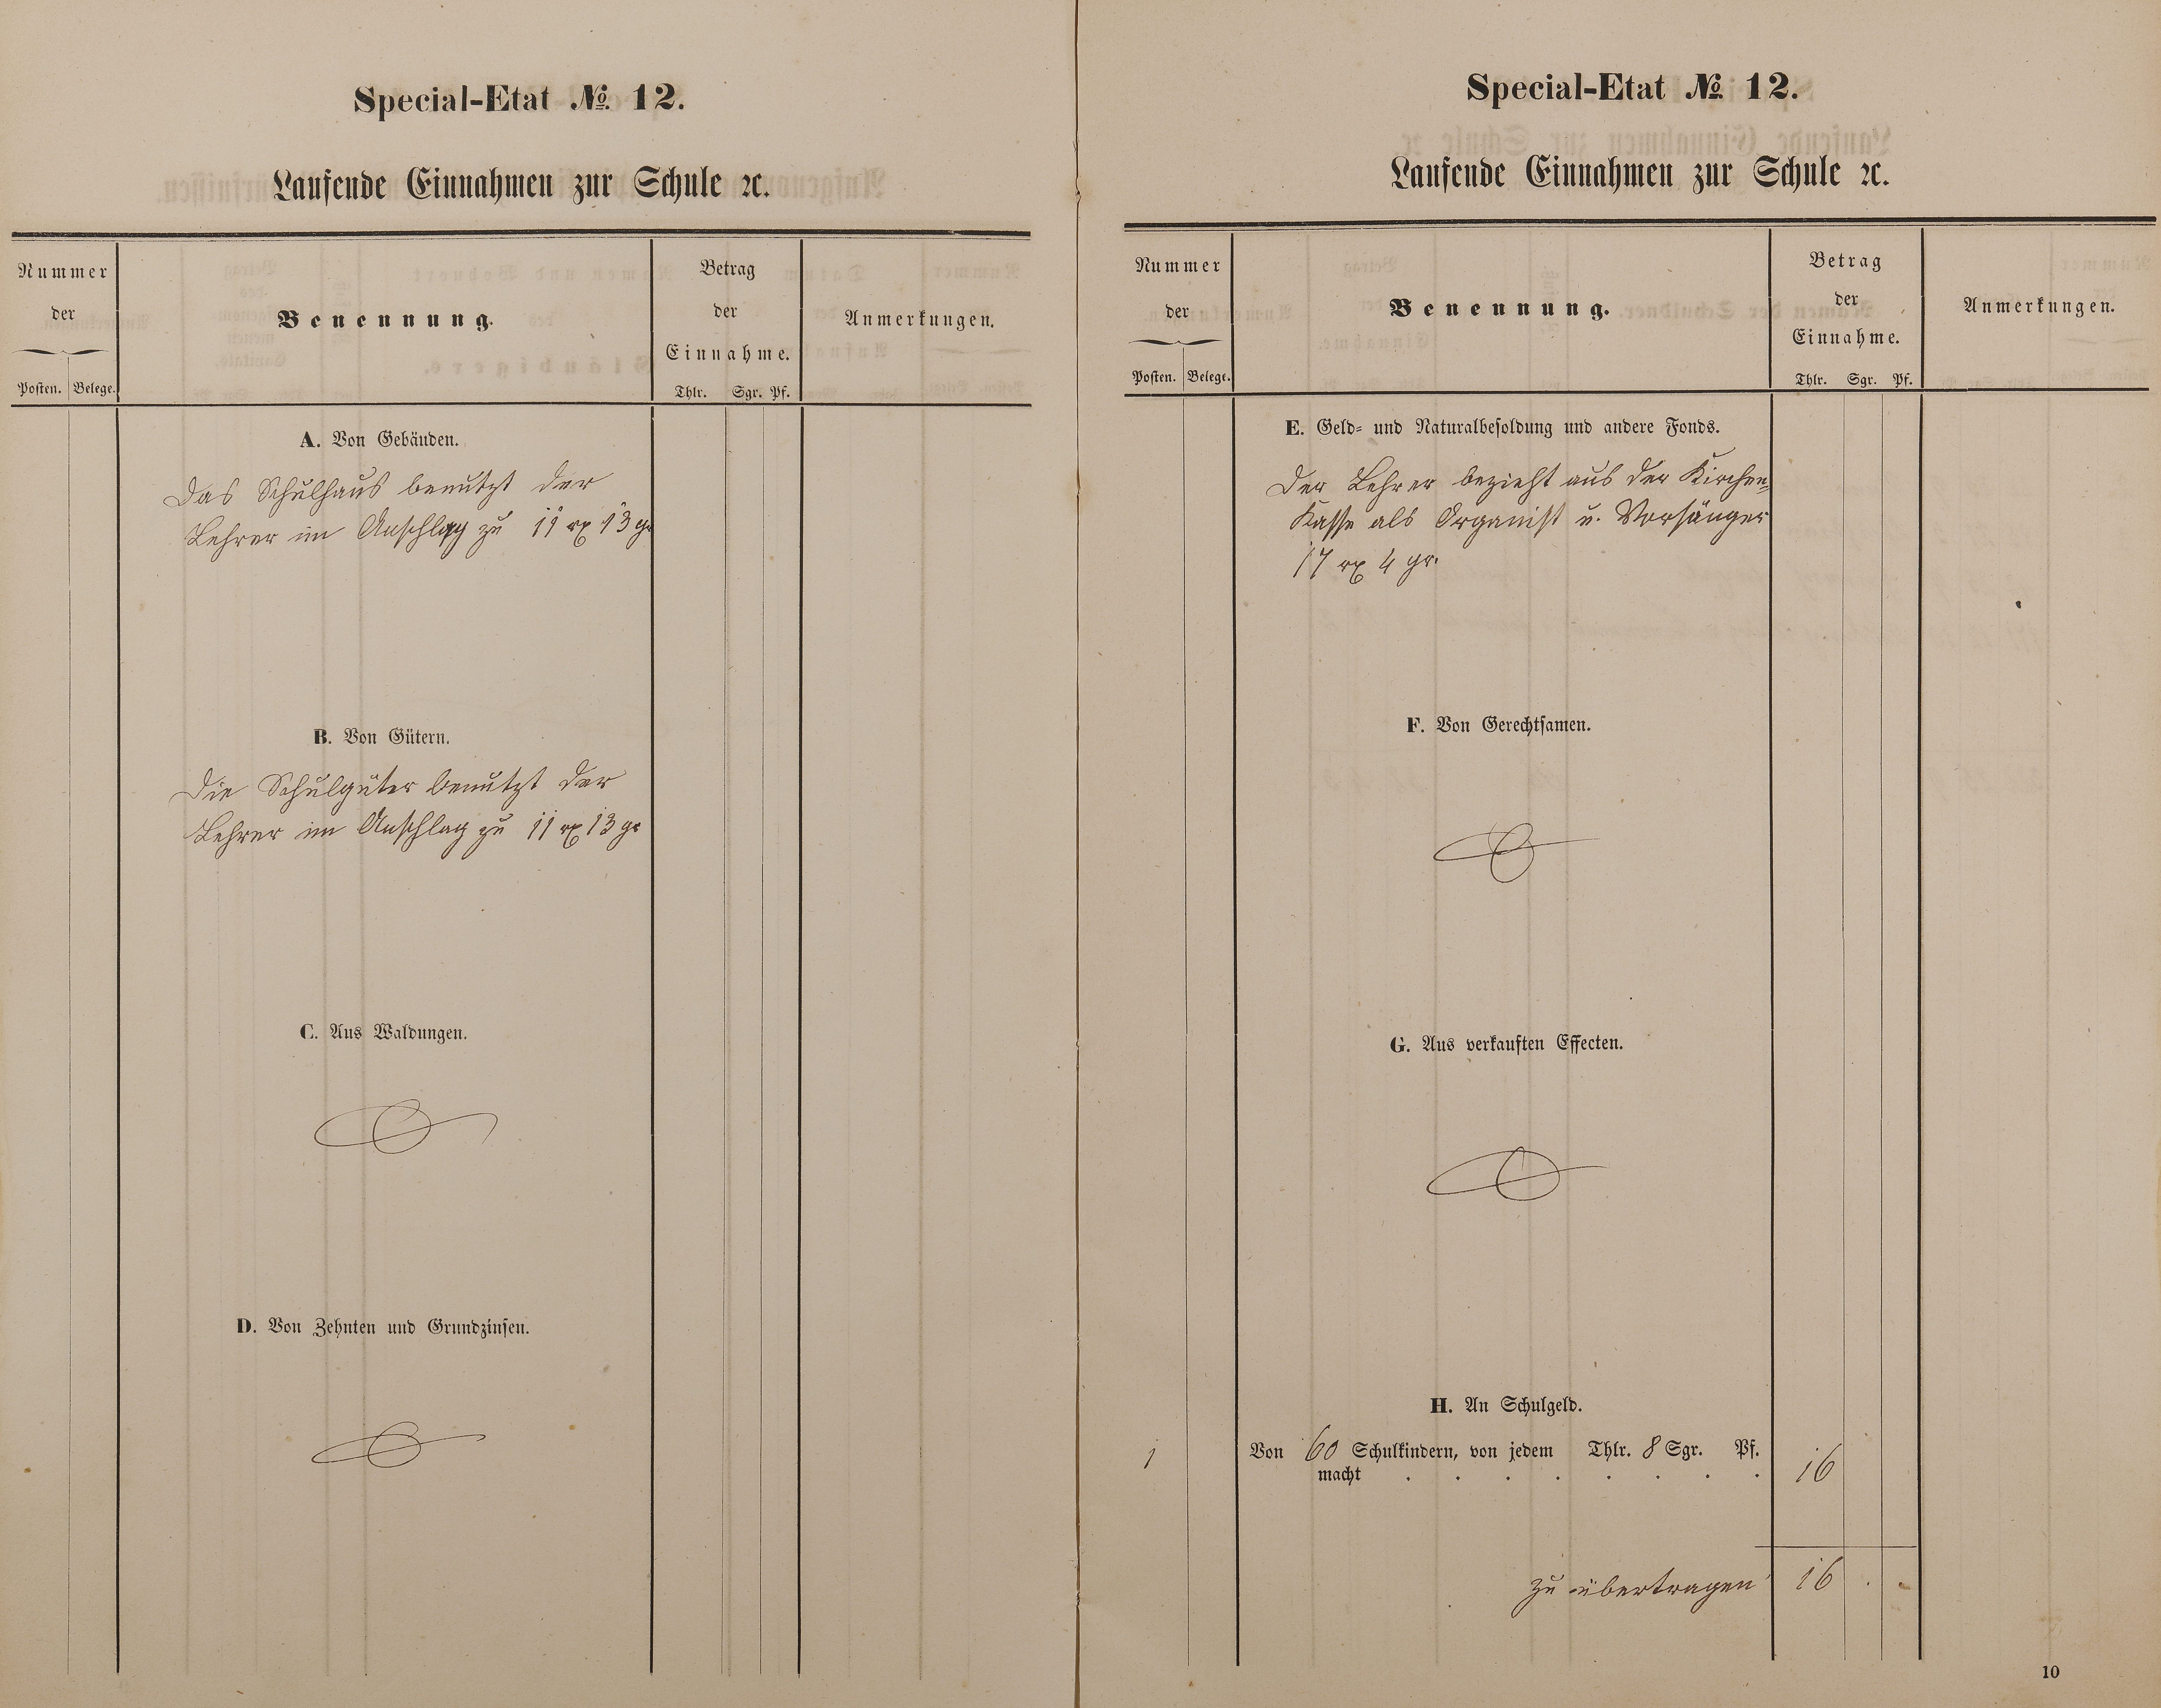 Special-Etat № 12.
Laufende Einnahmen zur Schule ꝛc.
Nummer
der
Posten. Belege.
Benennung.
Betrag
der
Einnahme.
Thlr. Sgr. Pf.
Anmerkungen.
A. Von Gebäuden.
Das Schulhaus benutzt der
Lehrer im Anschlag zu 11 rx 13 gr
B. Von Gütern.
Die Schulgüter benutzt der
Lehrer im Anschlag zu 11 rx 13 gr
C. Aus Waldungen.
D. Von Zehnten und Grundzinsen.
Special-Etat № 12.
Laufende Einnahmen zur Schule ꝛc.
Nummer
der
Posten. Belege.
Benennung.
Betrag
der
Einnahme.
Thlr. Sgr. Pf.
Anmerkungen.
E. Geld- und Naturalbesoldung und andere Fonds.
Der Lehrer bezieht aus der Kirchen-
Kasse als Organist u. Vorsänger
17 rx 4 gr.
F. Von Gerechtsamen.
G. Aus verkauften Effecten.
H. An Schulgeld.
1 Von 60 Schulkindern, von jedem Thlr. 8 Sgr. Pf.
macht . . . . . . . . 16
zu übertragen 16 . .
10